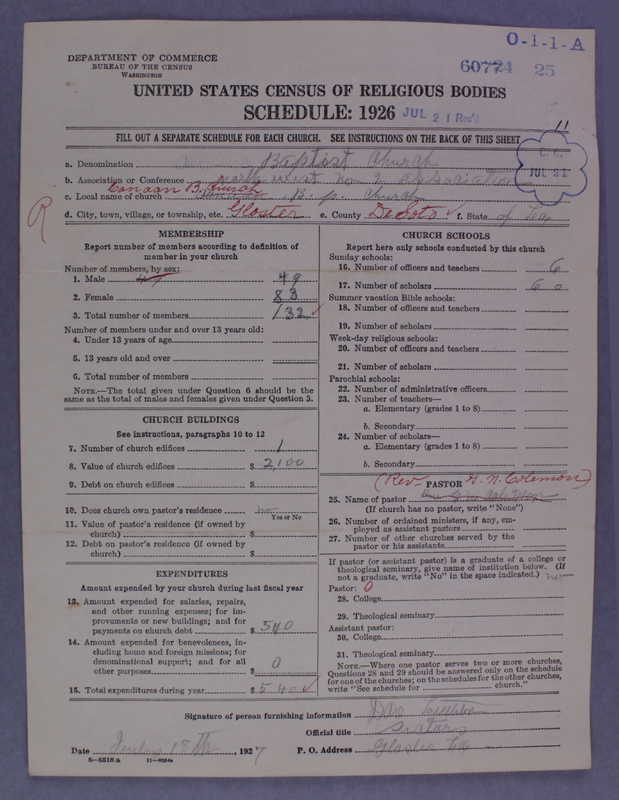 O-1-1-A
DEPARTMENT OF COMMERCE
BUREAU OF THE CENSUS
WASHINGTON
60724 25
UNITED STATES CENSUS OF RELIGIOUS BODIES
SCHEDULE: 1926
JUL 21 Rec'd
11
FILL OUT A SEPARATE SCHEDULE FOR EACH CHURCH. SEE INSTRUCTIONS ON THE BACK OF THIS SHEET
C. C.
JUL 21
a. Denomination Baptist Church
b. Association or Conference north west no 2 association
Canaan B. Church
c. Local name of church B. church
d. City, town, village, or township, etc. Gloster e. County DeSoto f. State of La
R
MEMBERSHIP
Report number of members according to definition of
member in your church
Number of members, by sex:
1. Male 49
2. Female 83
3. Total number of members 132
Number of members under and over 13 years old:
4. Under 13 years of age
5. 13 years old and over
6. Total number of members
NOTE.—The total given under Question 6 should be the
same as the total of males and females given under Question 3.
CHURCH BUILDINGS
See instructions, paragraphs 10 to 12
7. Number of church edifices 1
8. Value of church edifices $ 2,100
9. Debt on church edifices $
10. Does church own pastor's residence no
Yes or No
11. Value of pastor's residence (if owned by
church) $
12. Debt on pastor's residence (if owned by
church) $
EXPENDITURES
Amount expended by your church during last fiscal year
13. Amount expended for salaries, repairs,
and other running expenses; for im-
provements or new buildings; and for
payments on church debt $ 540
14. Amount expended for benevolences, in-
cluding home and foreign missions; for
denominational support; and for all
other purposes $ 0
15. Total expenditures during year $ 540
CHURCH SCHOOLS
Report here only schools conducted by this church
Sunday schools:
16. Number of officers and teachers 6
17. Number of scholars 60
Summer vacation Bible schools:
18. Number of officers and teachers
19. Number of scholars
Week-day religious schools:
20. Number of officers and teachers
21. Number of scholars
Parochial schools:
22. Number of administrative officers
23. Number of teachers—
a. Elementary (grades 1 to 8)
b. Secondary
24. Number of scholars—
a. Elementary (grades 1 to 8)
b. Secondary
(Rev. PASTOR G. N. Colemon)
25. Name of pastor
(If church has no pastor, write "None")
26. Number of ordained ministers, if any, em-
ployed as assistant pastors
27. Number of other churches served by the
pastor or his assistants
If pastor (or assistant pastor) is a graduate of a college or
theological seminary, give name of institution below. (If
not a graduate, write "No" in the space indicated.) no
Pastor: 0
28. College
29. Theological seminary
Assistant pastor:
30. College
31. Theological seminary
NOTE.—Where one pastor serves two or more churches,
Questions 28 and 29 should be answered only on the schedule
for one of the churches; on the schedules for the other churches,
write "See schedule for church."
Signature of person furnishing information
Official title
Date 18th, 1927 P. O. Address Gloster La
8-5518a 11-9554a